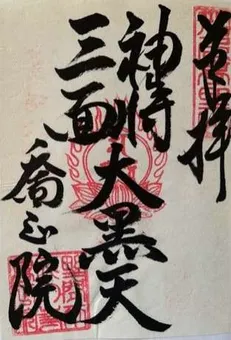 奉拝
神将
三面
大黒天
喬正院